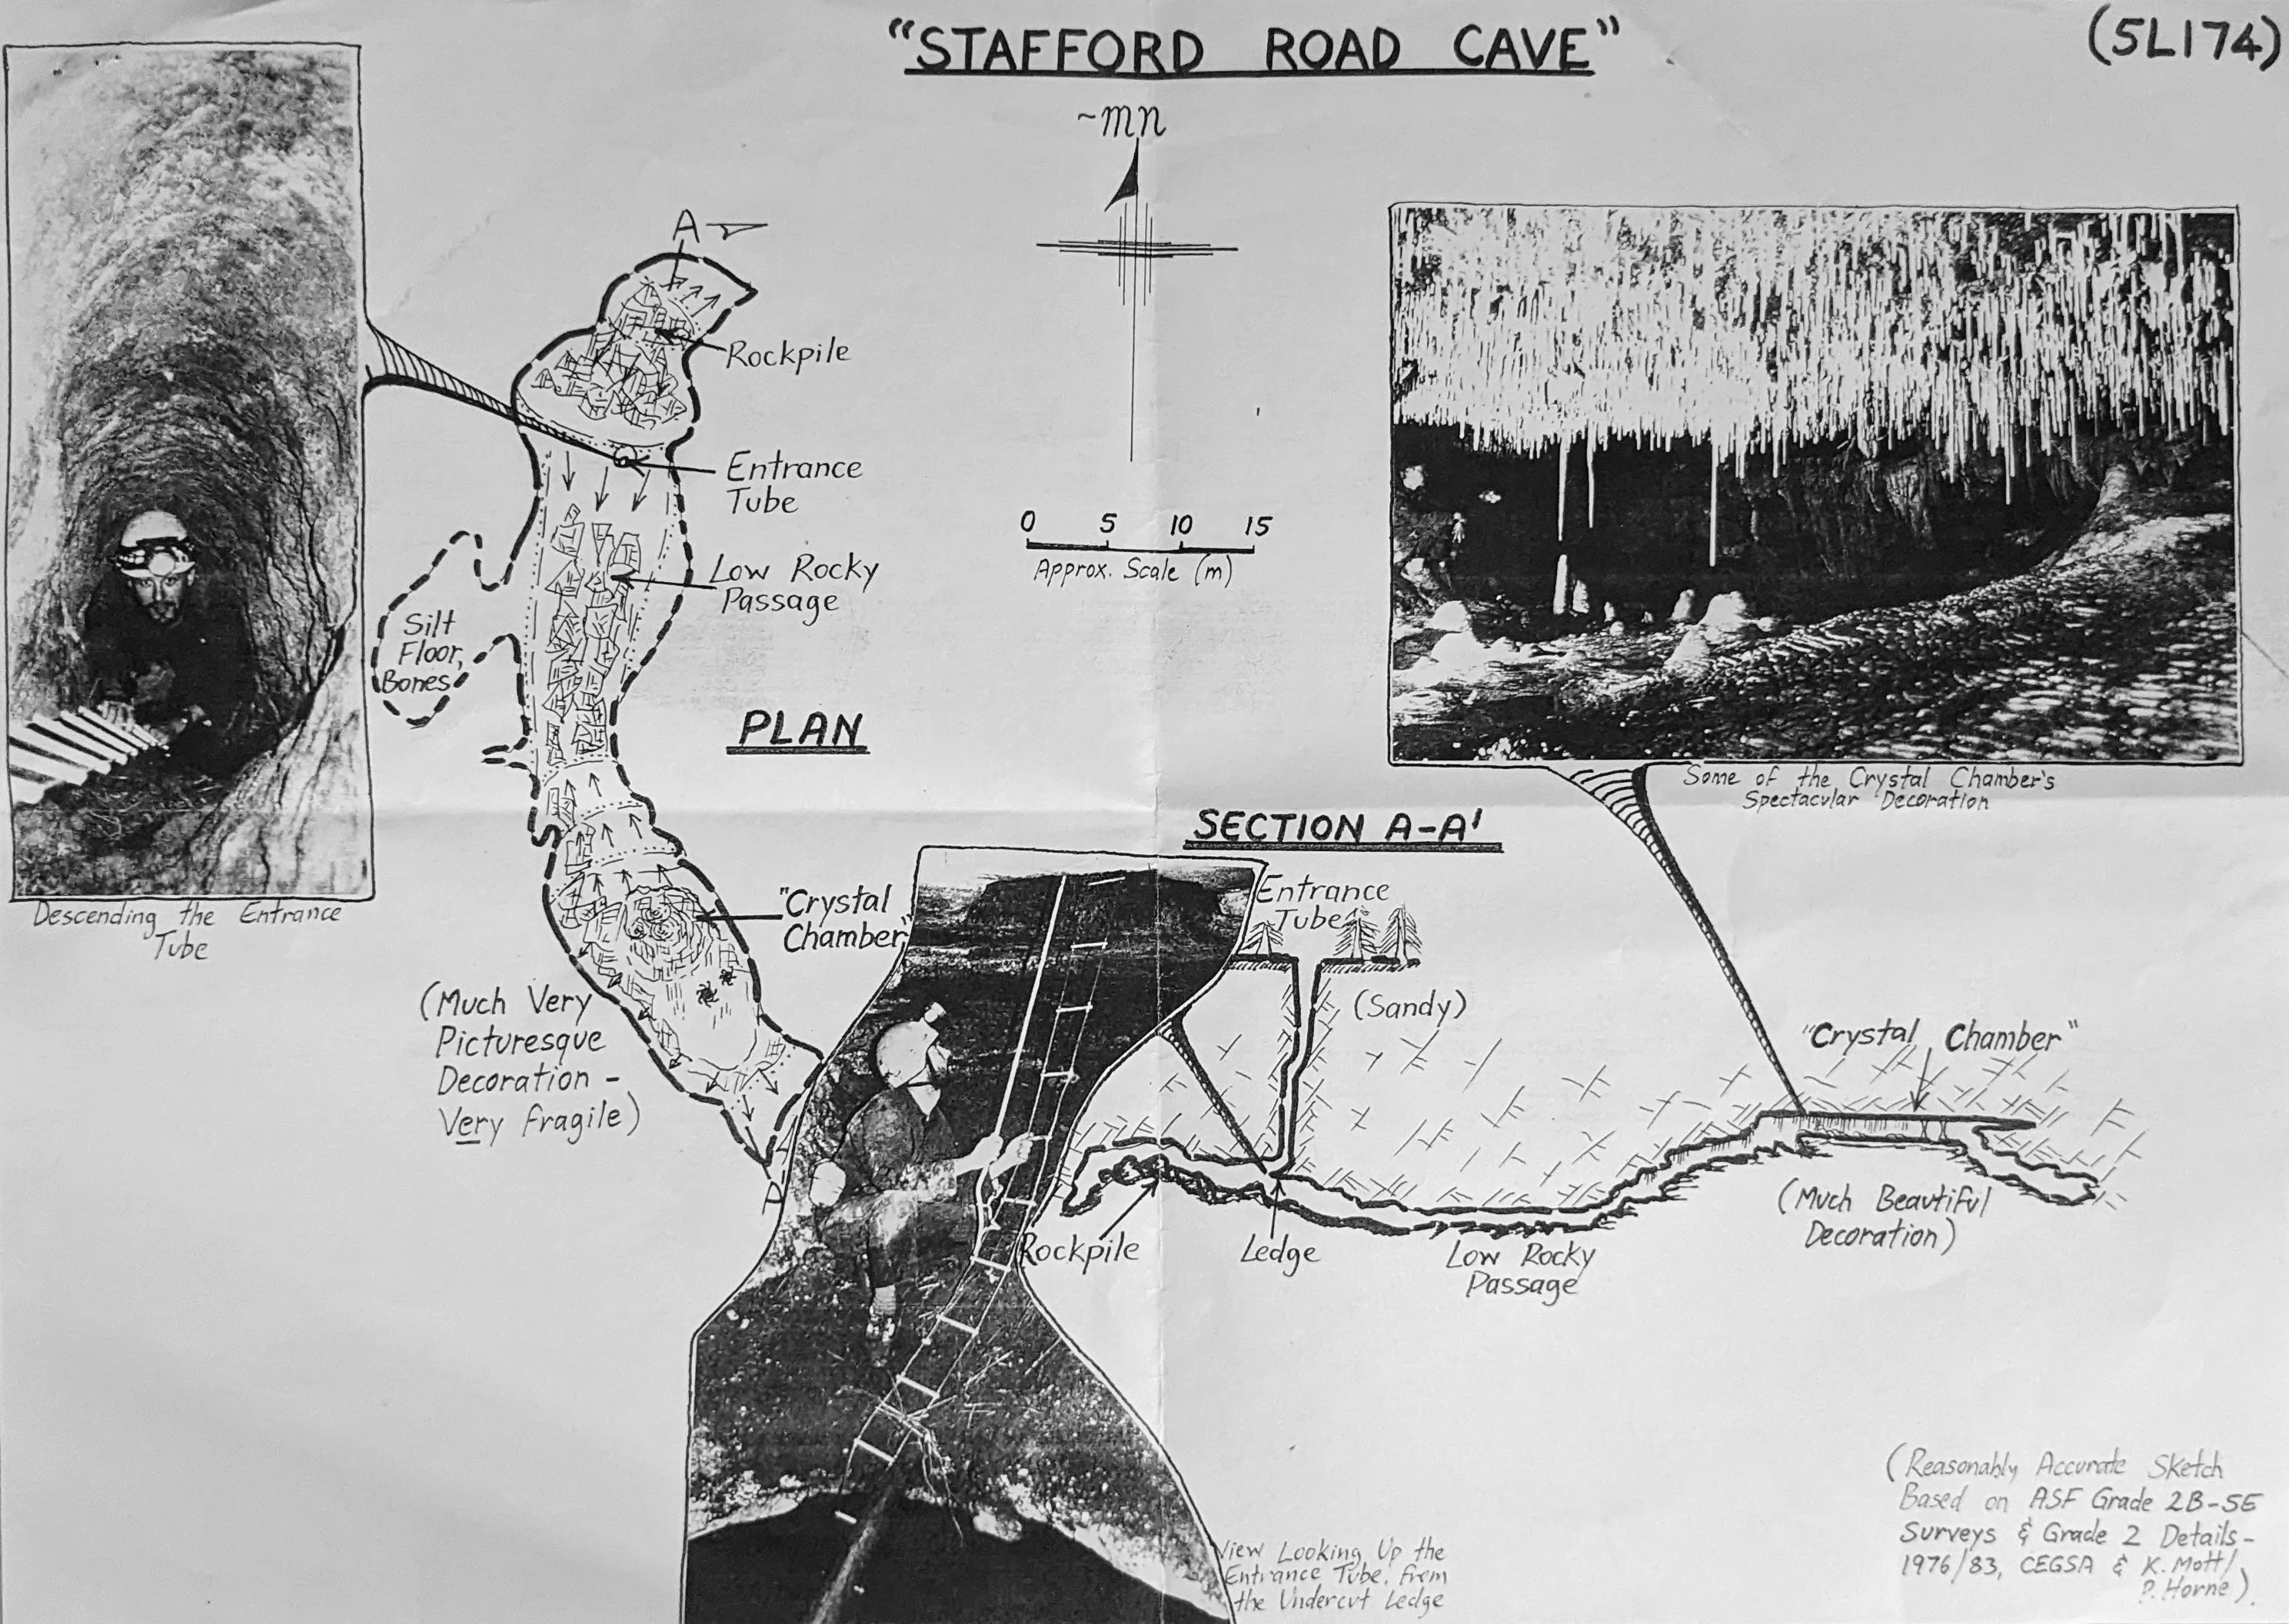 "STAFFORD ROAD CAVE"
(5L174)
~mn
A
Rockpile
Entrance
Tube
Low Rocky
Passage
Silt
Floor,
Bones
0 5 10 15
Approx. Scale (m)
PLAN
"Crystal
Chamber"
(Much Very
Picturesque
Decoration -
Very Fragile)
Descending the Entrance
Tube
Some of the Crystal Chamber's
Spectacular Decoration
SECTION A-A'
Entrance
Tube
(Sandy)
"Crystal Chamber"
(Much Beautiful
Decoration)
Rockpile
Ledge
Low Rocky
Passage
View Looking Up the
Entrance Tube, from
the Undercut Ledge
(Reasonably Accurate Sketch
Based on ASF Grade 2B-5E
Surveys & Grade 2 Details-
1976/83, CEGSA & K. Mott/
P. Horne).